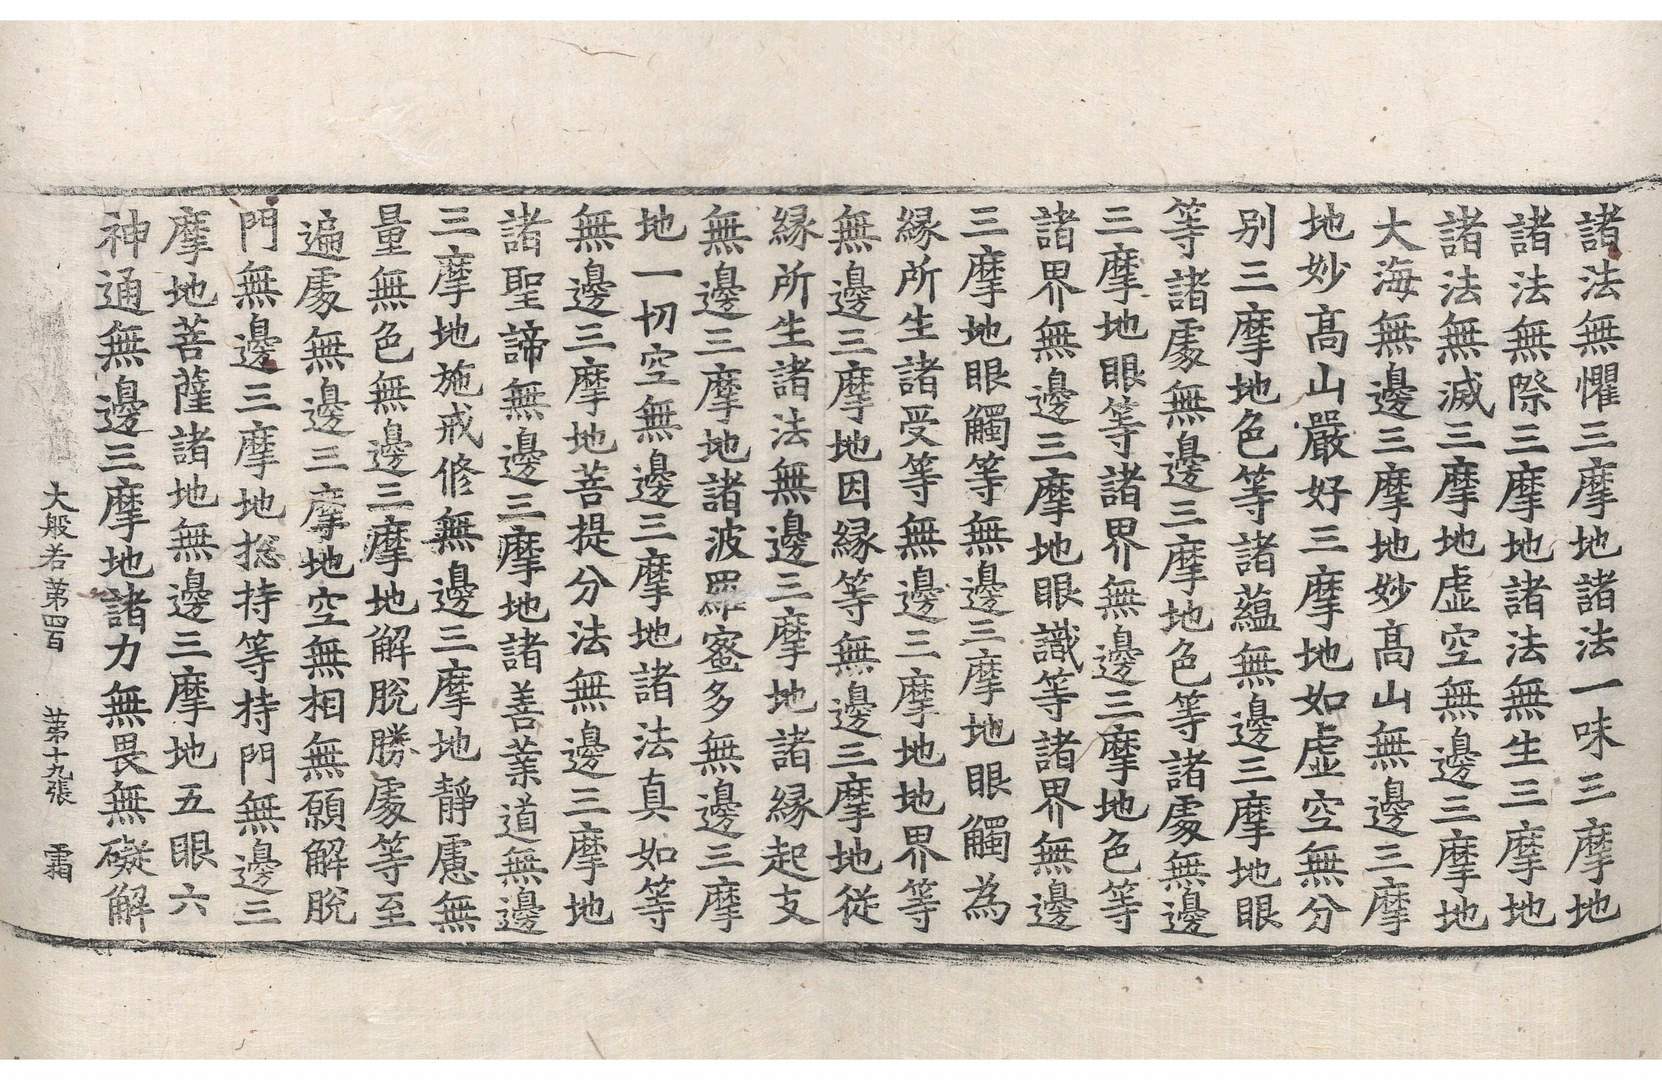 諸法無懼三摩地諸法一味三摩地
諸法無際三摩地諸法無生三摩地
諸法無滅三摩地虛空無邊三摩地
大海無邊三摩地妙髙山無邊三摩
地妙髙山嚴好三摩地如虛空無分
别三摩地色等諸蘊無邊三摩地眼
等諸處無邊三摩地色等諸處無邊
三摩地眼等諸界無邊三摩地色等
諸界無邊三摩地眼識等諸界無邊
三摩地眼觸等無邊三摩地眼觸為
縁所生諸受等無邊三摩地地界等
無邊三摩地因縁等無邊三摩地從
縁所生諸法無邊三摩地諸縁起支
無邊三摩地諸波羅蜜多無邊三摩
地一切空無邊三摩地諸法真如等
無邊三摩地菩提分法無邊三摩地
諸聖諦無邊三摩地諸善業道無邊
三摩地施戒修無邊三摩地靜慮無
量無色無邊三摩地解脫勝處等至
遍處無邊三摩地空無相無願解脫
門無邊三摩地揔持等持門無邊三
摩地菩薩諸地無邊三摩地五眼六
神通無邊三摩地諸力無畏無礙解
大般若苐四百 苐十九張 霜